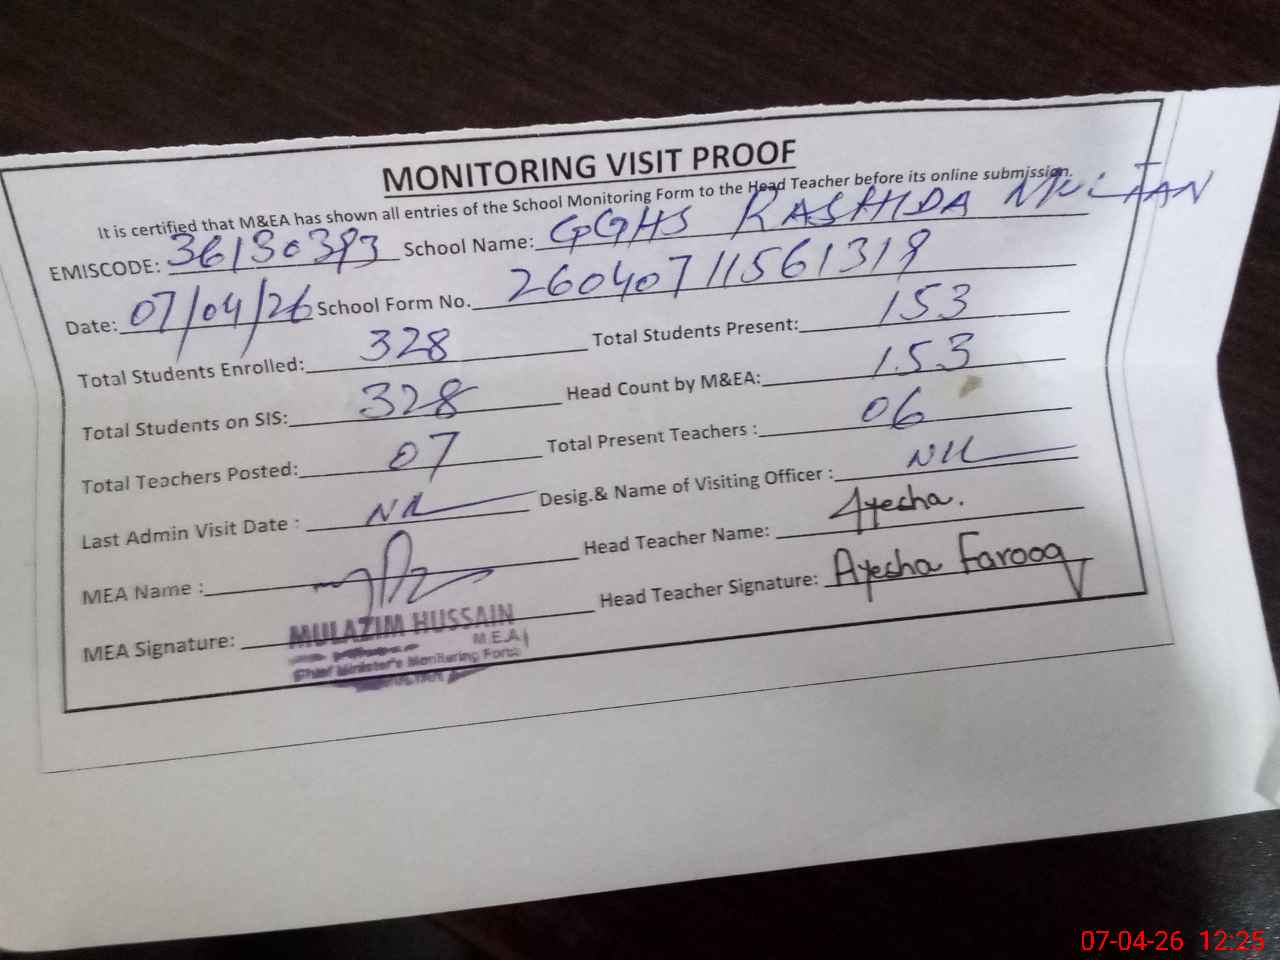 MONITORING VISIT PROOF
It is certified that M&EA has shown all entries of the School Monitoring Form to the Head Teacher before its online submission.
EMISCODE: 36130393 School Name: GGHS RASHIDA MULTAN
Date: 07/04/26 School Form No. 26040711561319
Total Students Enrolled: 328 Total Students Present: 153
Total Students on SIS: 328 Head Count by M&EA: 153
Total Teachers Posted: 07 Total Present Teachers : 06
Last Admin Visit Date : Nil Desig.& Name of Visiting Officer : Nil
MEA Name : Head Teacher Name: Ayesha.
MEA Signature: Head Teacher Signature: Ayesha Farooq
MULAZIM HUSSAIN
M.E.A
Chief Minister's Monitoring Force
07-04-26 12:25